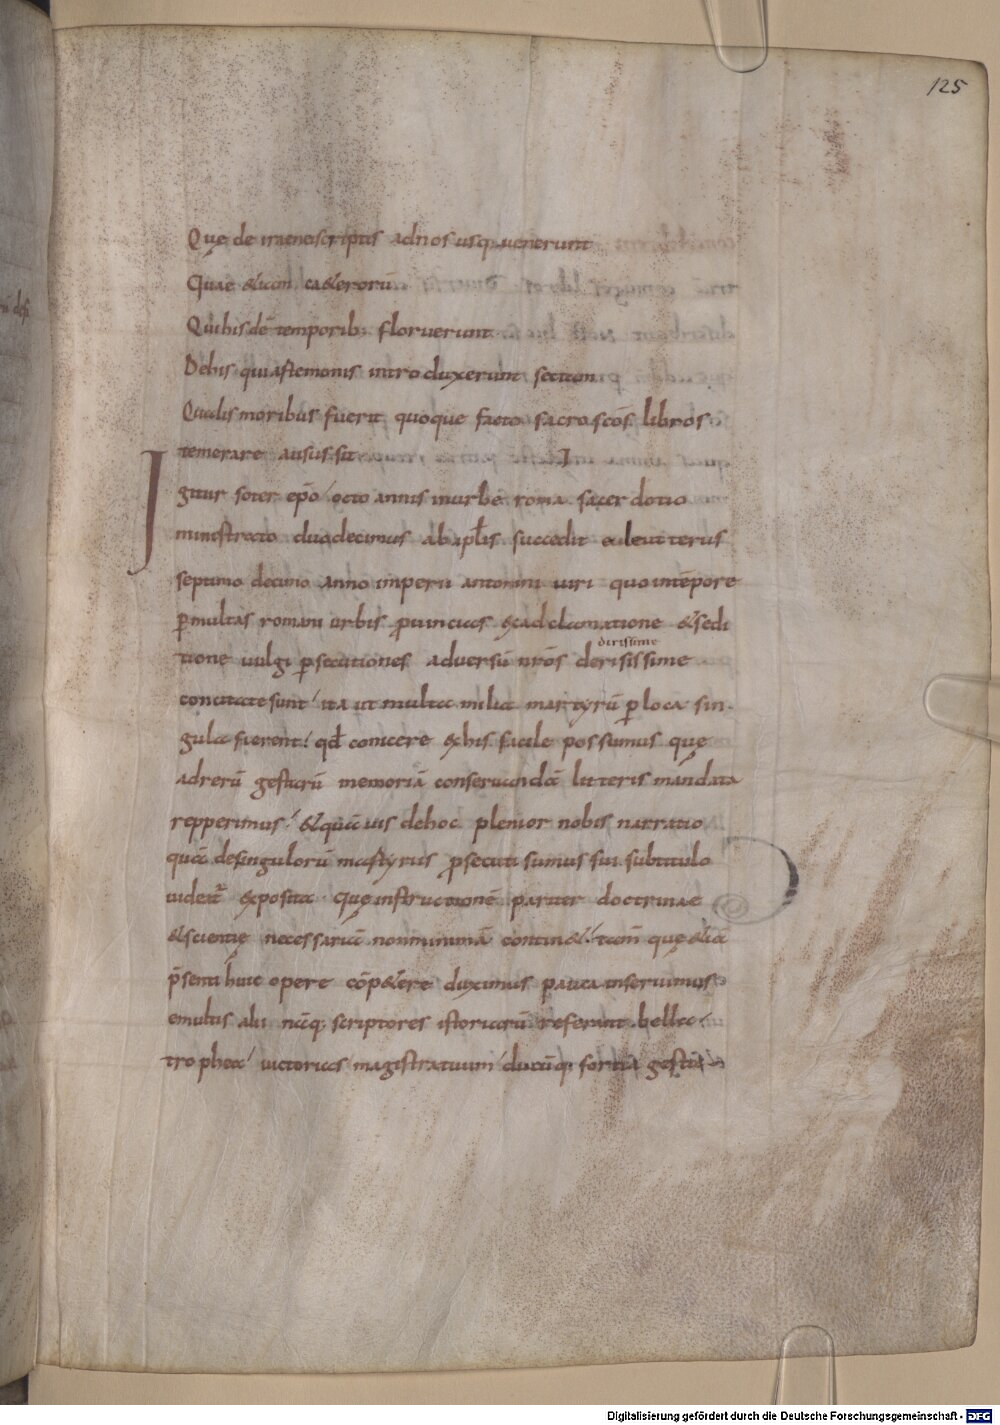 125
Quę de iraeneiscriptis adnos usq; uenerunt
Quae &iam ca&erorū
Quihisdē temporib; floruerunt
Dehis quiastemonis introduxerunt sectam
Qualis moribus fuerit quoque facto sacroscōs libros
temerare ausus sit I
Igitur soter epō octo annis inurbe roma sacerdotio
ministrato duodecimus abaplis succedit eleutterus
septimo decimo anno imperii antonini uiri quointēpore
pmultas romani urbis prouincias exadclamatione &sedi
dirissime
tione uulgi psecutiones aduersū nrōs derisissime
concitate sunt ita ut multa milia martyrū p loca sin
gula fierent qđ conicere exhis facile possumus que
adrerū gestarū memoriā conseruandā litteris mandata
repperimus &quā uis dehoc plenior nobis narratio
quā desingulorū mastyrus psecuti sumus sui subtitulo
uideat exposita Quę instructionē pariter doctrinae
&scientię necessariā nonminimā contin& tam que &iā
psenti huic opere cōp&ere duximus pauca inseruimus
emultis alii nāq; scriptores istoriarū referant bella
trophea uictorias magistratuum ducūq; fortia gesta
Digitalisierung gefördert durch die Deutsche Forschungsgemeinschaft - DFG